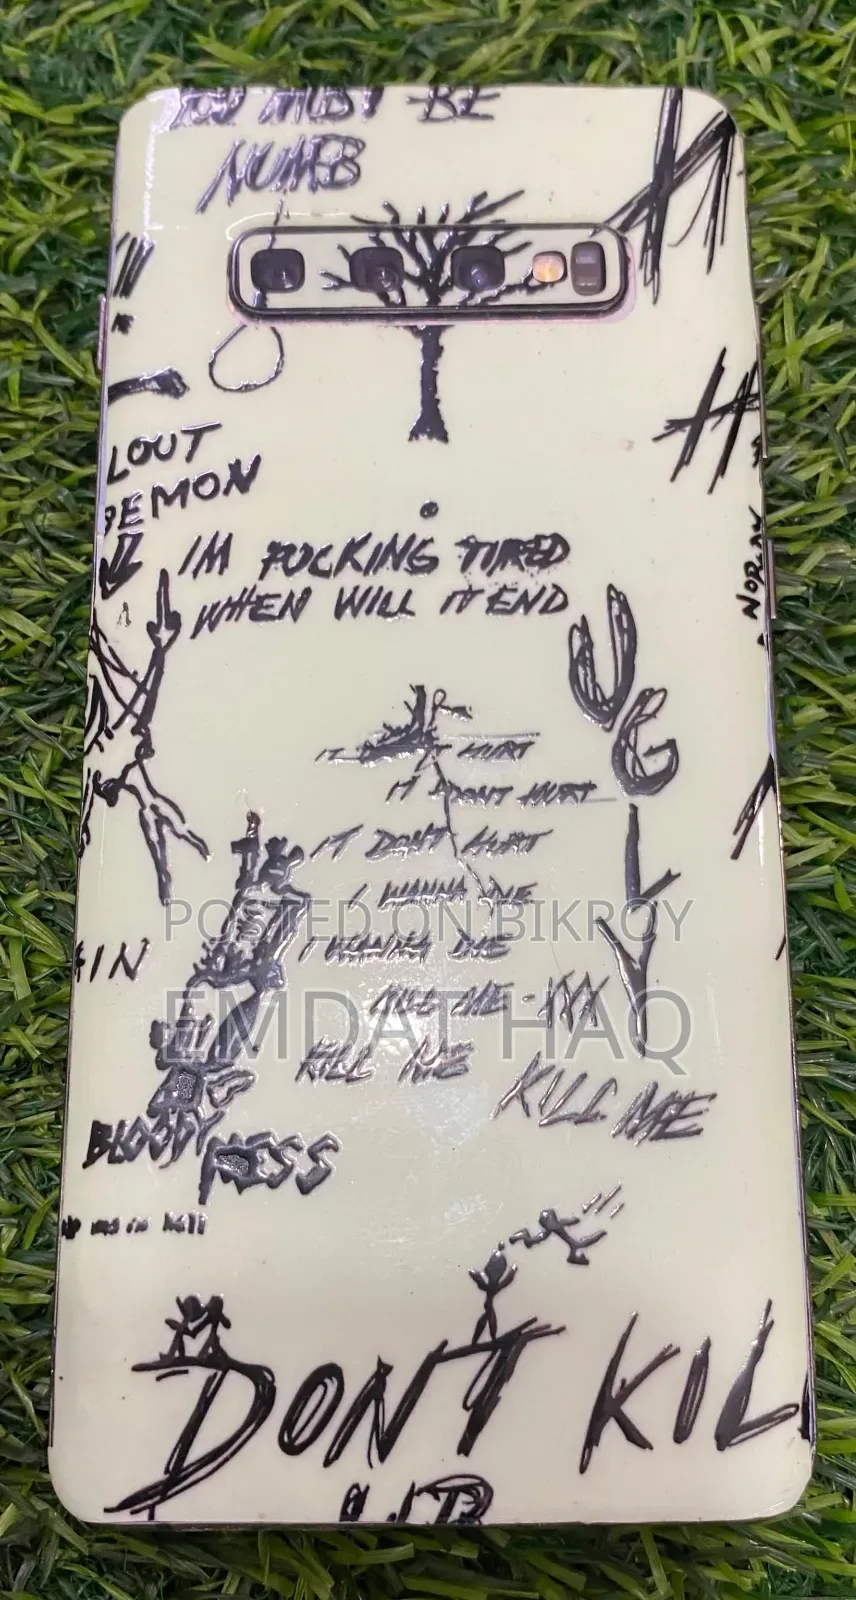 YOU MUST BE
NUMB
LOUT
DEMON
IM FUCKING TIRED
WHEN WILL IT END
UGLY
IT HURT
IT DONT HURT
IT DONT HURT
I WANNA DIE
I WANNA DIE
KILL ME - XXX
KILL ME
KILL ME
POSTED ON BIKROY
EMDAT HAQ
BLOODY
MESS
DONT KIL